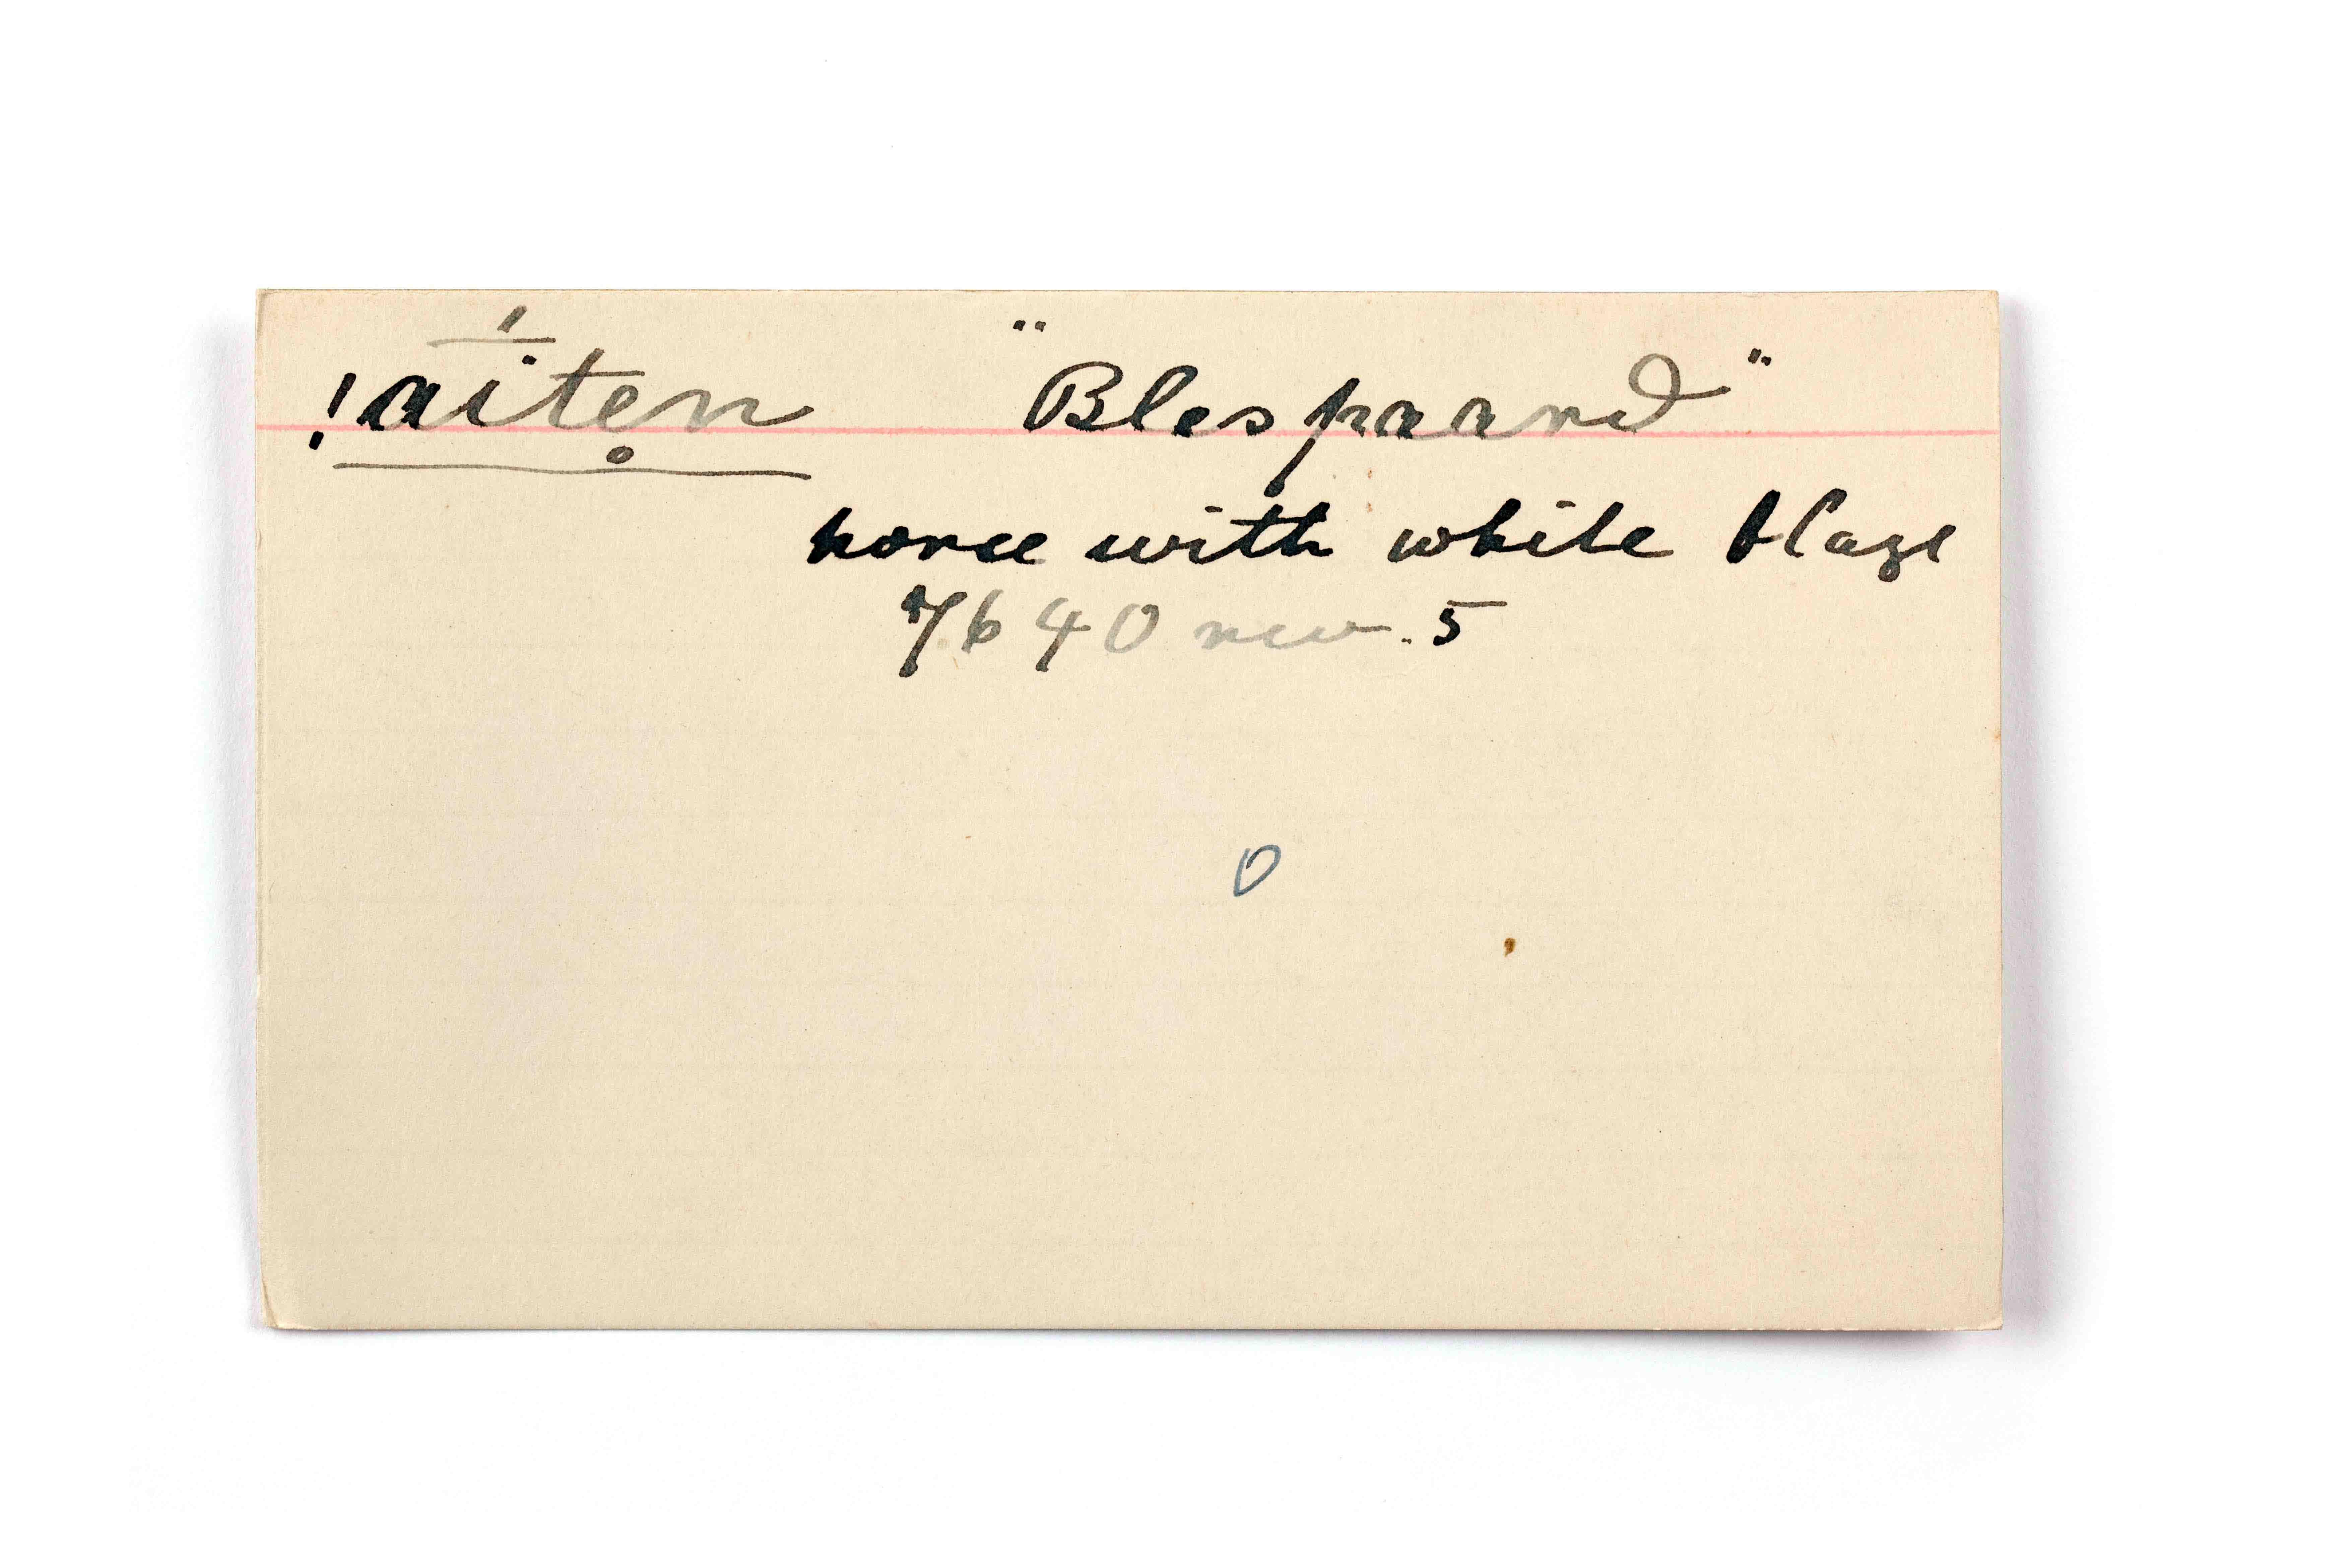 !a͞íten̥ "Blespaard"
horse with white blaze
7640 rev. 5
0